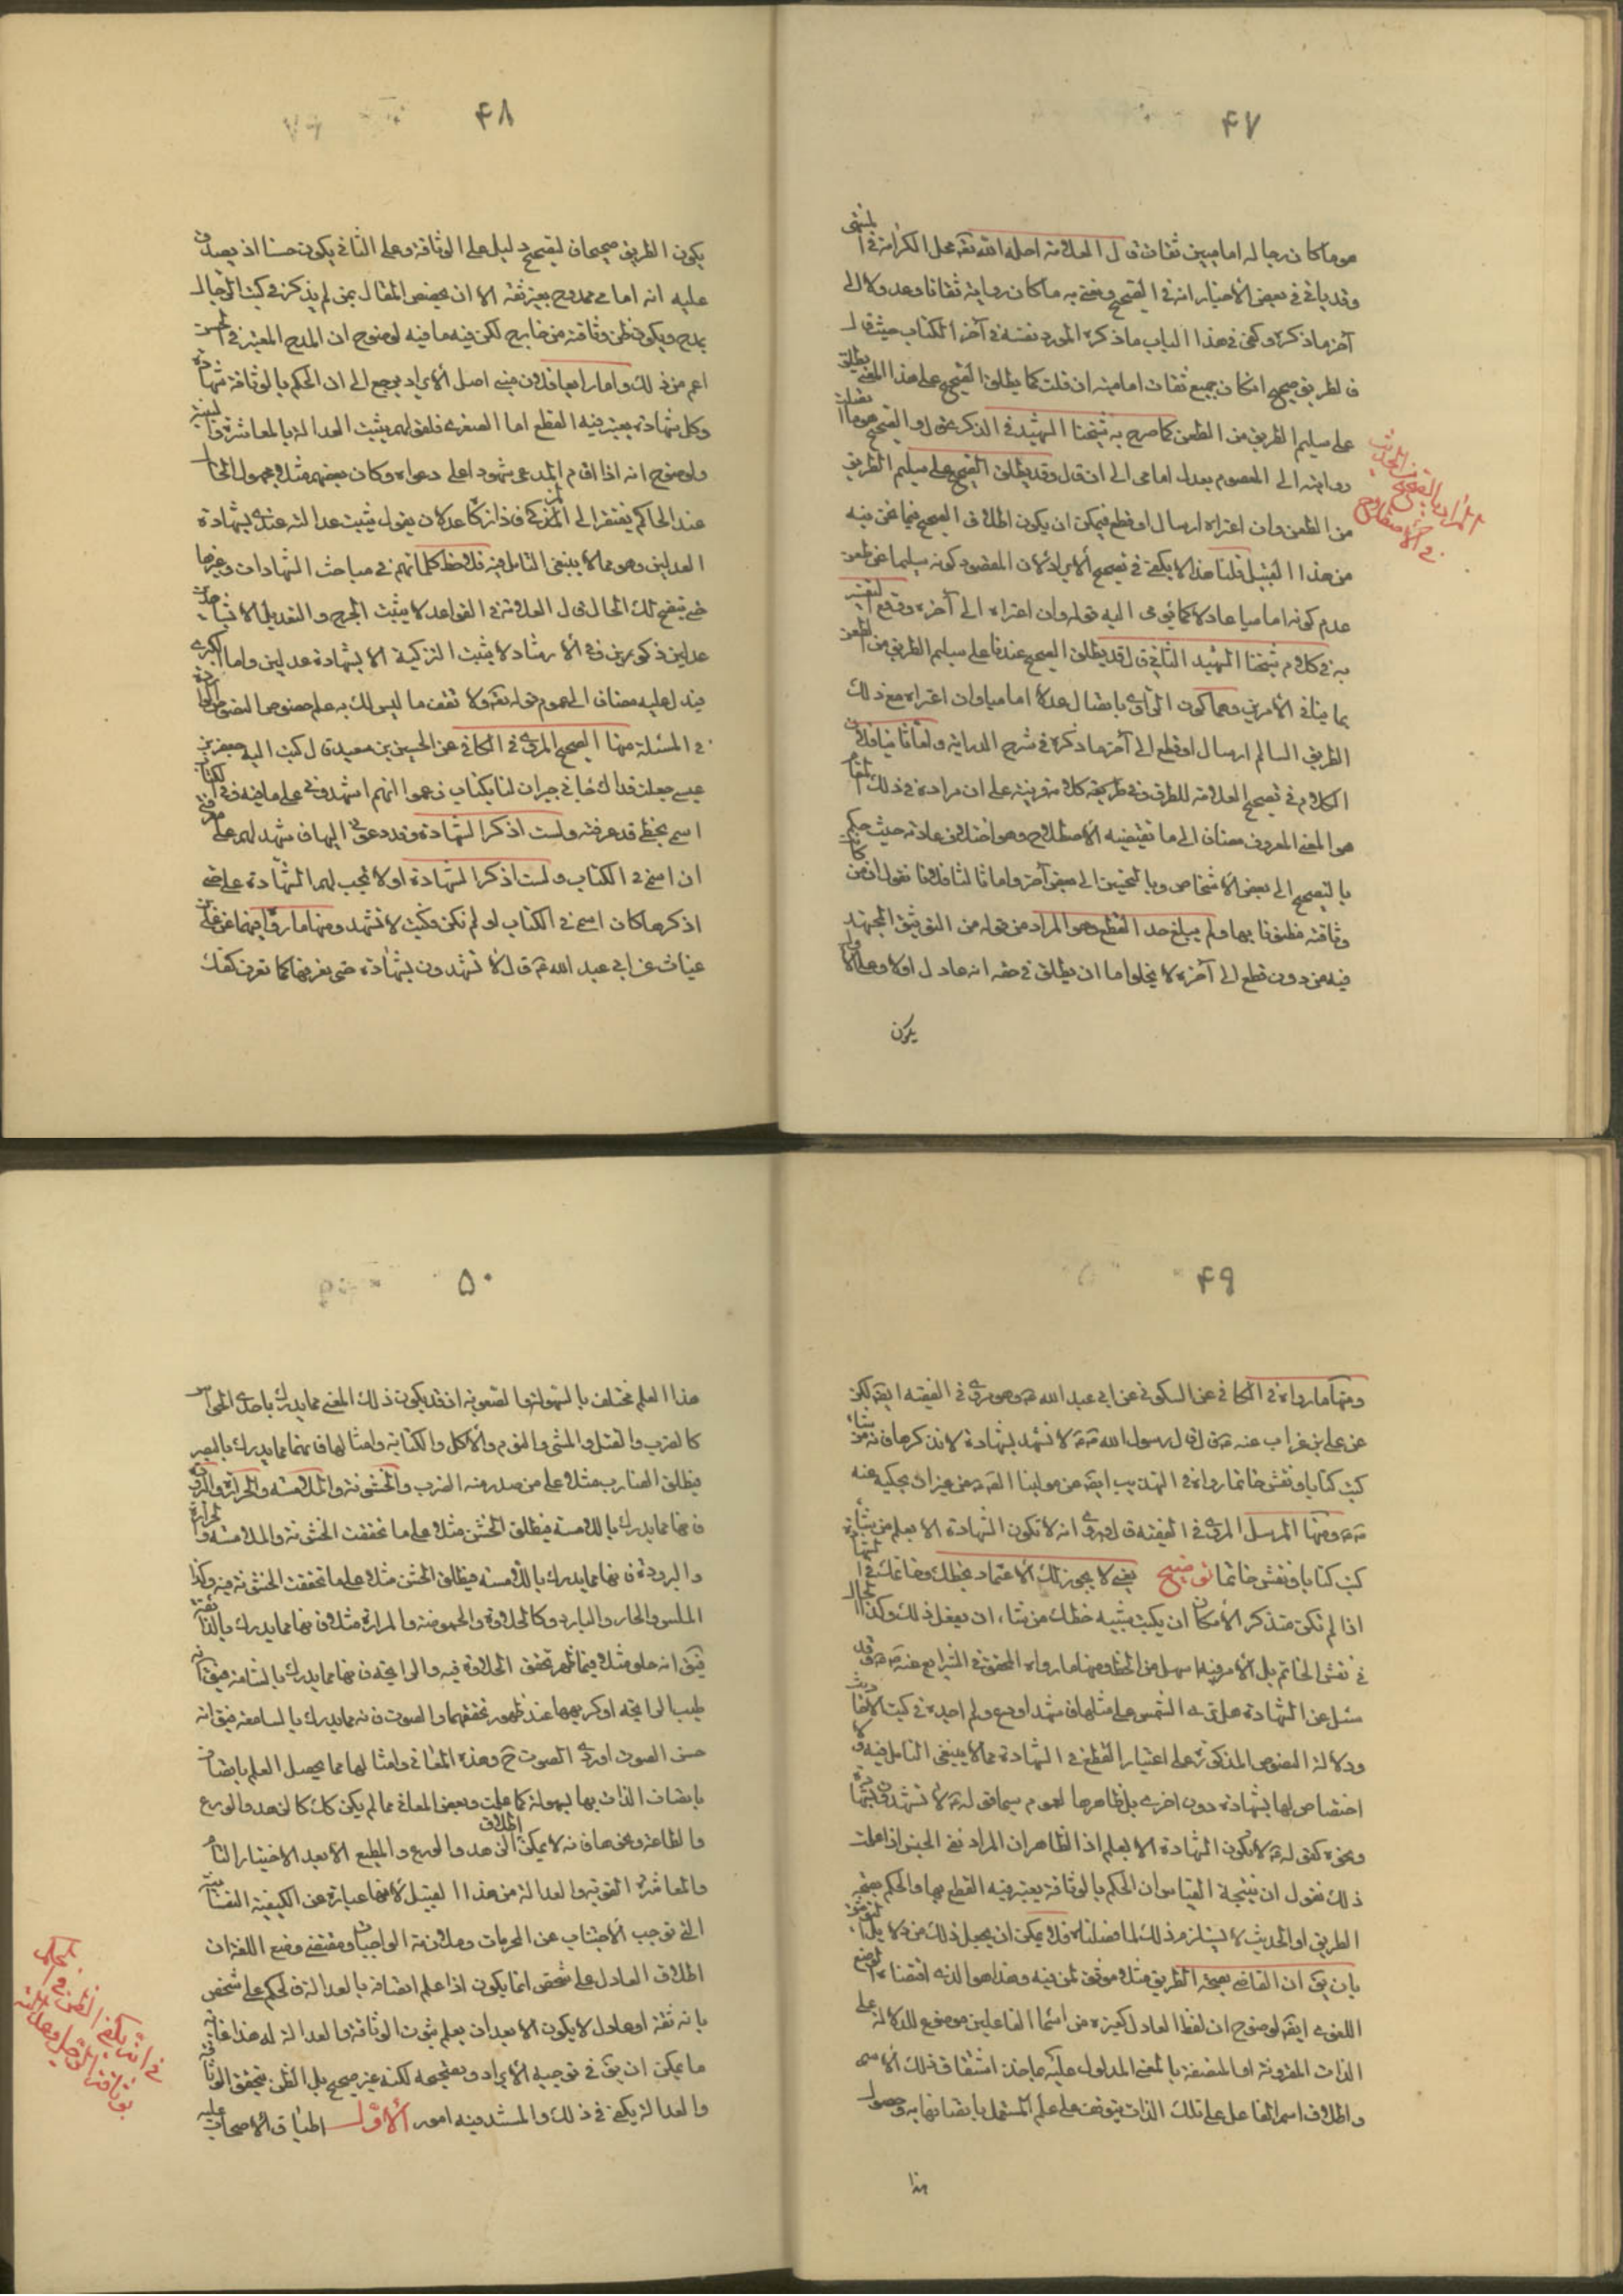 ۴۷
هو ما كان رجاله اماميين ثقات قال العلامة احله الله تعه محل الكرامة في المنتهى
وقد ياتي في بعض الأخبار انه في الصحيح ونعني به ما كان رواية ثقاتا وعدولا الى
آخر ما ذكره وكفى في هذا الباب ما ذكره المورد نفسه في آخر الكتاب حيث قال
فالطريق صحيح ان كان جميع ثقات امامية ان قلت كما يطلق الصحيح على هذا المعنى يطلق
على سليم الطريق من الطعن كما صرح به شيخنا الشهيد في الذكرى قال والصحيح هو ما اتصلت
روايته الى المعصوم بعدل امامي الى ان قال وقد يطلق الصحيح على سليم الطريق
من الطعن وان اعتراه ارسال او قطع فيمكن ان يكون اطلاق الصحيح فيما نحن فيه
من هذا القبيل قلنا هذا لا يكفي في تصحيح الأيراد لان المقصود كونه سليما عن طعن
عدم كونه اماميا عادلا كما يومى اليه قوله وان اعتراه الى آخره ووقع التفسير
به في كلام شيخنا الشهيد الثاني قال قد يطلق الصحيح عندنا على سليم الطريق من الطعن
بما ينافي الأمرين وهما كون الراوي باتصال عدلا اماميا وان اعتراه مع ذلك
الطريق السالم ارسال او قطع الى آخر ما ذكره في شرح الدراية واما ثانيا فلان
الكلام في تصحيح العلامة للطرق وفي طريقة كلامه قرينة على ان مراده في ذلك المقام
هو المعنى المعروف مضافا الى ما تقتضيه الأصطلاح وهو اختلاف عادته حيث حكم
بالتصحيح الى بعض الأشخاص وبالتحسين الى بعض آخر واما ثالثا فلانا نقول ان من كان
وثاقته مظنونا بها ولم يبلغ حد القطع وهو المراد من قوله من التوثيق المجتهد
فيه من دون قطع الى آخره لا يخلو اما ان يطلق في حقه انه عادل اولا وعلى الاول
يكون
المراد بالصحيح من الحديث
في الأصطلاح
۴۸
يكون الطريق صحيحا فالتصحيح دليل على الوثاقة وعلى الثاني يكون حسنا اذ يصدق
عليه انه امامي ممدوح بغير ثقة الا ان يخصص المقال بمن لم يذكر في كتب الرجال
بمدح ويكون ظن وثاقته من خارج لكن فيه ما فيه لوضوح ان المدح المعتبر في الحسن
اعم من ذلك واما رابعا فلان مبنى اصل الأيراد يرجع الى ان الحكم بالوثاقة شهادة
وكل شهادة يعتبر فيه القطع اما الصغرى فلقولهم يثبت العدالة بالمعاشرة والبينة
ولوضوح انه اذا اقام المدعي شهودا على دعواه وكان بعضهم مثلا مجهول الحال
عند الحاكم يفتقر الى المزكي فاذا زكاه عدلان يقول يثبت عدالته عندي بشهادة
العدلين وهو مما لا ينبغي التامل فيه فلاحظ كلماتهم في مباحث الشهادات وغيرها
حتى يتضح لك الحال قال العلامة في القواعد لا يثبت الجرح والتعديل الا بشهادة
عدلين ذكورين وفي الأرشاد لا يثبت التزكية الا بشهادة عدلين واما الكبرى
فيدل عليه مضافا الى عموم قوله تعه ولا تقف ما ليس لك به علم خصوص النصوص الواردة
في المسئلة منها الصحيح المروي في الكافي عن الحسين بن سعيد قال كتب اليه جعفر بن
عيسى جعلت فداك جاني جيران لنا بكتاب زعموا انهم اشهدوني على ما فيه وفي الكتاب
اسمى بخطي قد عرفته ولست اذكر الشهادة وقد دعوني اليها فاشهد لهم على معرفتي
ان اسمي في الكتاب ولست اذكر الشهادة اولا تجب لهم الشهادة على حتى
اذكرها كان اسمى في الكتاب او لم يكن فكتب لا تشهد ومنها ما رواه فيهما عن علي بن
غياث عن ابي عبد الله ع قال لا تشهدون بشهادة حتى تعرفها كما تعرف كفك
۴۹
ومنها ما رواه في الكافي عن السكوني عن ابي عبد الله ع وهو مروي في الفقيه ايضه لكن
عن علي بن غراب عنه ع قال قال رسول الله ص لا تشهد بشهادة لا تذكرها فانه من شاء
كتب كتابا ونقش خاتما رواه في التهذيب ايضه عن مولينا الصه ع من غير ان يحكيه عنه
ص ومنها المرسل المروي في الفقيه قال وروى انه لا تكون الشهادة الا بعلم من شاء
كتب كتابا ونقش خاتما توضيح يعني لا يجوز لك الأعتماد بخطك وخاتمك في الشهادة
اذا لم تكن متذكرا لأمكان ان يكتب بشبيه خطك من شاء ان يفعل ذلك وكذا الحال
في نقش الخاتم بل الأمر فيه اسهل من الخط ومنها ما رواه المحقق في الشرايع عنه ص وقد
سئل عن الشهادة هل ترى الشمس على مثلها فاشهد او دع ولم اجده في كتب الأحاديث
ودلالة النصوص المذكورة على اعتبار القطع في الشهادة مما لا ينبغي التامل فيه ولا
اختصاص لها بشهادة دون اخرى بل ظاهرها العموم سيما قوله ع لا تشهدون بشهادة
ونحوه كقوله ع لا تكون الشهادة الا بعلم اذ الظاهر ان المراد نفي الجنس اذا علمت
ذلك نقول ان نتيجة القياس ان الحكم بالوثاقة يعتبر فيه القطع بها والحكم بصحة
الطريق او الحديث لا يستلزم ذلك لما فصلناه فلا يمكن ان يجعل ذلك من دلايل التوثيق
بان يق ان القاضي بصحة الطريق مثلا موثق لمن فيه وهذا هو الذي اقتضاء الوضع
اللغوى ايضه لوضوح ان لفظ العادل كغيره من اسماء الفاعلين موضوع للدلالة على
الذات المقرونة او المتصفة بالمعنى المدلول عليه بما خذ اشتقاق ذلك الأسم
واطلاق اسم الفاعل على تلك الذات يتوقف على علم المستعمل باتصافها به وحصول
هذا
۵۰
هذا العلم مختلف بالسهولة والصعوبة اذ قد يكون ذلك المعنى مما يدرك باحدى الحواس
كالضرب والقتل والمشي والنوم والأكل والكتابة وامثالها فانها مما يدرك بالبصر
فيطلق الضارب مثلا على من صدر منه الضرب والخشونة والملامسة والحرارة والبرودة
فانها مما يدرك بالامسة فيطلق الخشن مثلا على ما تحققت الخشونة والملامسة والحرارة
والبرودة فانها مما يدرك بالامسة فيطلق الخشن مثلا على ما تحققت الخشونة فيه وكذا
الملس والحار والبارد وكالحلاوة والحموضة والمرارة مثلا فانها مما يدرك بالذائقة
فيق انه حلو مثلا فيما ظهر تحقق الحلاوة فيه والرايحة فانها مما يدرك بالشامة فيق انه
طيب الرايحة او كريهها عند ظهور تحققهما والصوت فانه مما يدرك بالسامعة فيق انه
حسن الصوت او ردى الصوت ح وهذه المعاني وامثالها مما يحصل العلم باتصاف
باتصاف الذات بها بسهولة كما علمت وبعض المعاني مما لم يكن كك كالزهد والورع
والطاعة ونحوها فانه لا يمكن اطلاق الزهد والورع والمطيع الا بعد الاختبار التام
والمعاشرة القوية والعدالة من هذا القبيل لأنها عبارة عن الكيفية النفسانية
التي توجب الأجتناب عن المحرمات وملازمة الواجبات ومقتضى وضع اللغة ان
اطلاق العادل على شخص انما يكون اذا علم اتصافه بالعدالة فالحكم على شخص
بانه ثقة او عادل لا يكون الا بعد ان يعلم ثبوت الوثاقة والعدالة له هذا غاية
ما يمكن ان يق في توجيه الأيراد وتصحيحه لكنه غير صحيح بل الظن بتحقق الوثاقة
والعدالة يكفي في ذلك والمستند فيه امور الأول اطباق الأصحاب عليه
في انه يكفي الظن في الحكم
بوثاقة الرجل وعدالته